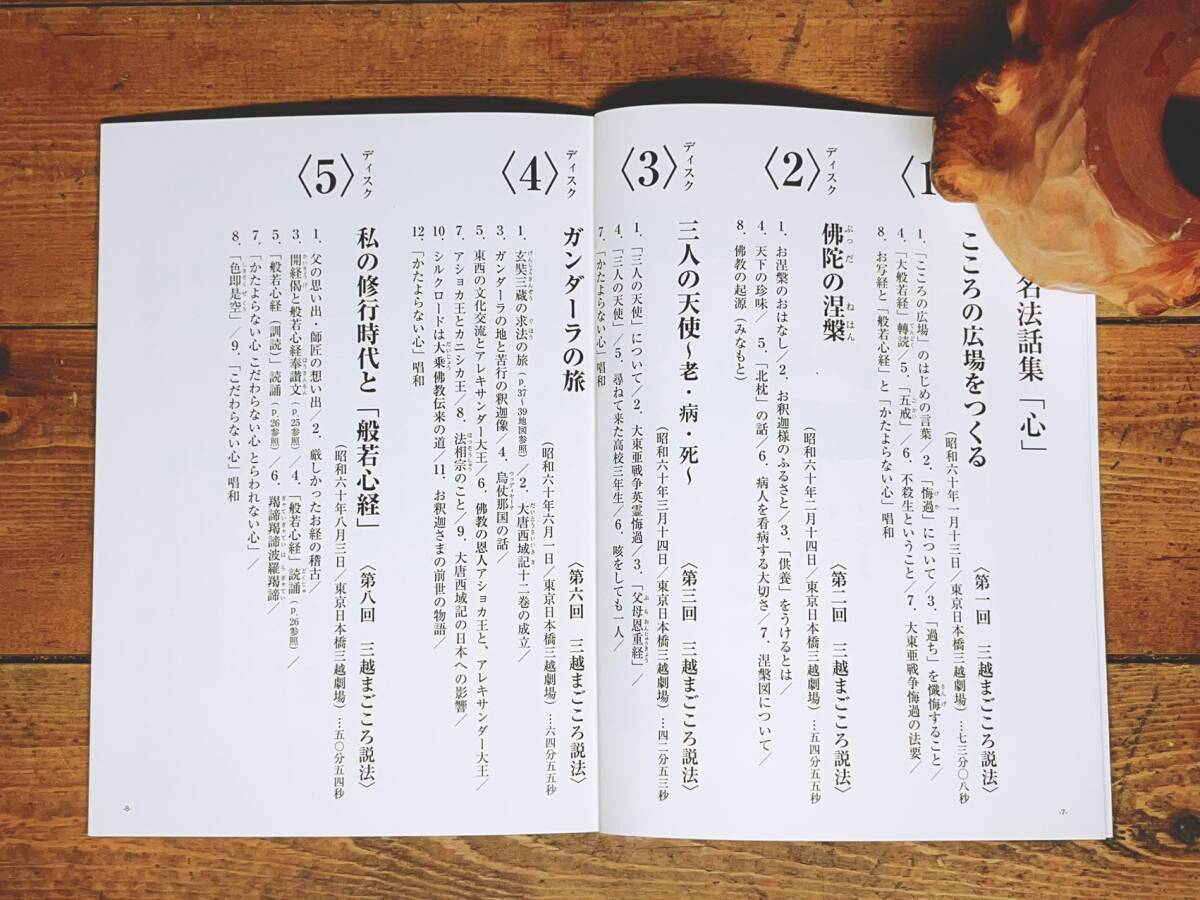 名法話集「心」
ディスク
〈1
こころの広場をつくる
〈第一回　三越まごころ説法〉
(昭和六十年一月十三日／東京日本橋三越劇場)…七三分〇八秒
1．「こころの広場」のはじめの言葉／2．「悔過」について／3．「過ち」を懺悔すること／
4．「大般若経」轉読／5．「五戒」／6．不殺生ということ／7．大東亜戦争悔過の法要／
8．お写経と「般若心経」と「かたよらない心」唱和
ディスク
〈2〉
佛陀の涅槃
〈第二回　三越まごころ説法〉
(昭和六十年二月十四日／東京日本橋三越劇場)…五四分五五秒
1．お涅槃のおはなし／2．お釈迦様のふるさと／3．「供養」をうけるとは／
4．天下の珍味／5．「北枕」の話／6．病人を看病する大切さ／7．涅槃図について／
8．佛教の起源(みなもと)
ディスク
〈3〉
三人の天使～老・病・死～
〈第三回　三越まごころ説法〉
(昭和六十年三月十四日／東京日本橋三越劇場)…四二分五三秒
1．「三人の天使」について／2．大東亜戦争英霊悔過／3．「父母恩重経」／
4．「三人の天使」／5．尋ねて来た高校三年生／6．咳をしても一人／
7．「かたよらない心」唱和
-7-
ディスク
〈4〉
ガンダーラの旅
〈第六回　三越まごころ説法〉
(昭和六十年六月一日／東京日本橋三越劇場)…六四分五五秒
1．玄奘三蔵の求法の旅(p.37～39地図参照)／2．大唐西域記十二巻の成立／
3．ガンダーラの地と苦行の釈迦像／4．烏仗那国の話／
5．東西の文化交流とアレキサンダー大王／6．佛教の恩人アショカ王と、アレキサンダー大王／
7．アショカ王とカニシカ王／8．法相宗のこと／9．大唐西域記の日本への影響／
10．シルクロードは大乗佛教伝来の道／11．お釈迦さまの前世の物語／
12．「かたよらない心」唱和
ディスク
〈5〉
私の修行時代と「般若心経」
〈第八回　三越まごころ説法〉
(昭和六十年八月三日／東京日本橋三越劇場)…五〇分五四秒
1．父の思い出・師匠の想い出／2．厳しかったお経の稽古／
3．開経偈と般若心経奉讃文(p.25参照)／4．「般若心経」読誦(p.26参照)／
5．「般若心経(訓読)」読誦(p.26参照)／6．羯諦羯諦波羅羯諦／
7．「かたよらない心 こだわらない心 とらわれない心」／
8．「色即是空」／9．「こだわらない心」唱和
-8-